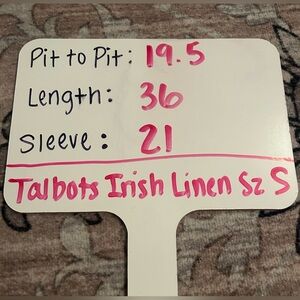 Pit to Pit: 19.5
Length: 36
Sleeve: 21
Talbots Irish Linen Sz S